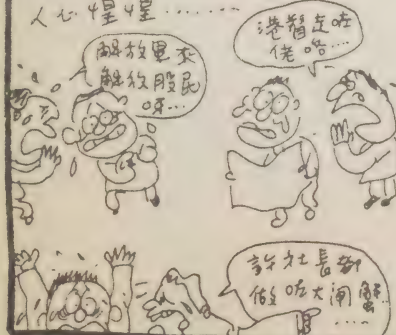 人心惶惶……
解放里衣
解放股民
呀…
港督走咗
佬唔…
許社長都
做咗大閘蟹
……